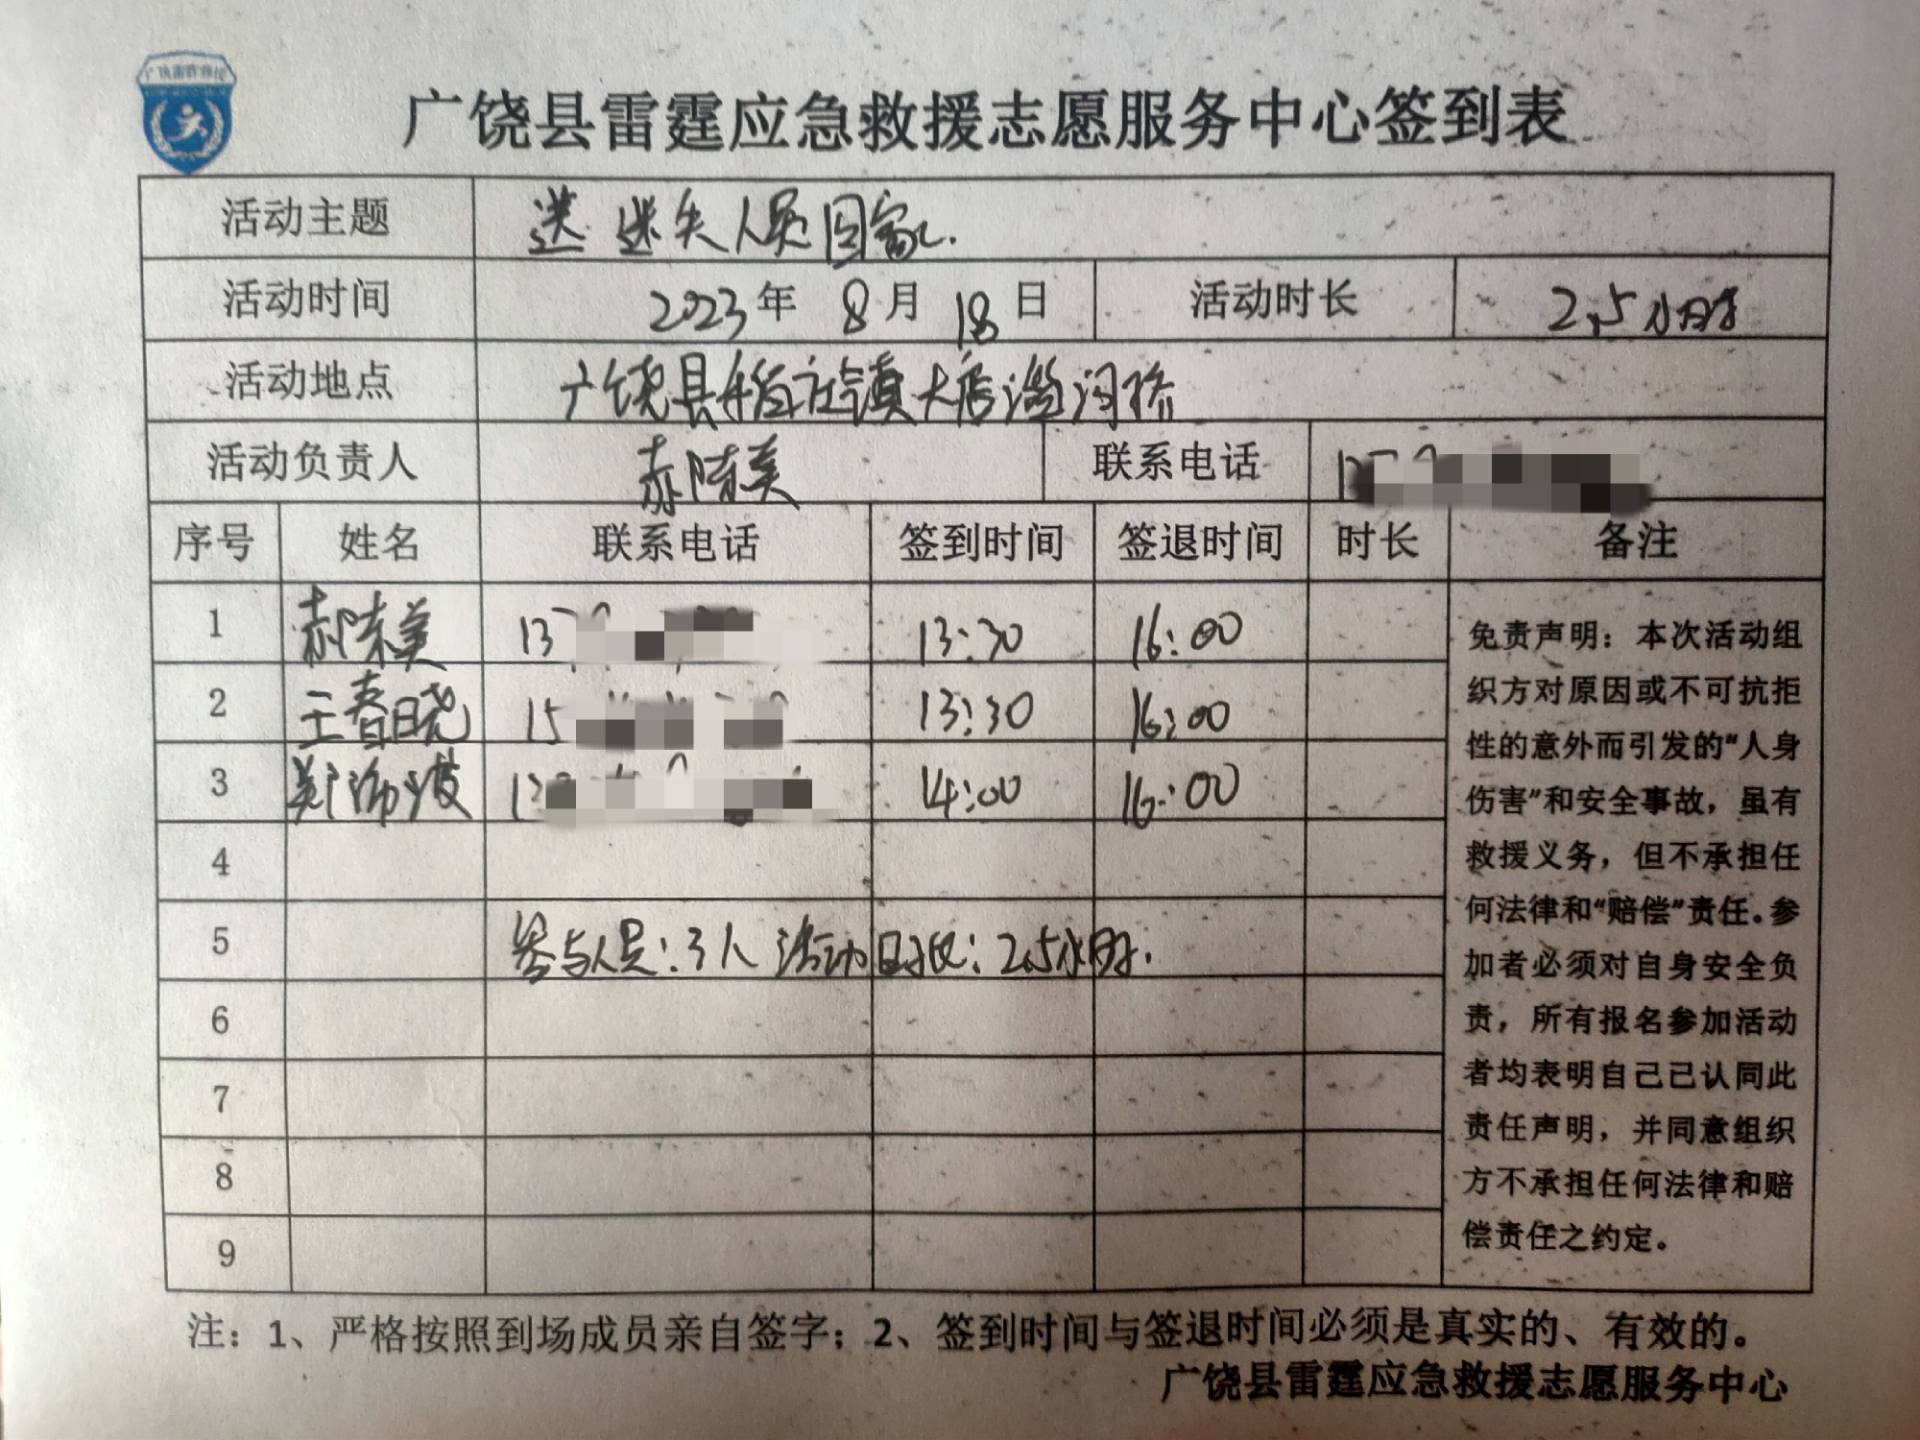 广饶县雷霆应急救援志愿服务中心签到表
活动主题 送迷失人员回家.
活动时间 2023年 8月 18日 活动时长 2.5小时
活动地点 广饶县稻庄镇大店淄河桥
活动负责人 联系电话
序号 姓名 联系电话 签到时间 签退时间 时长 备注
1 13 13:30 16:00
2 王春晓 15 13:30 16:00
3 14:00 16:00
4
5 参与人员:3人 活动时长:2.5小时.
6
7
8
9
免责声明：本次活动组
织方对原因或不可抗拒
性的意外而引发的“人身
伤害”和安全事故，虽有
救援义务，但不承担任
何法律和“赔偿”责任。参
加者必须对自身安全负
责，所有报名参加活动
者均表明自己已认同此
责任声明，并同意组织
方不承担任何法律和赔
偿责任之约定。
注：1、严格按照到场成员亲自签字；2、签到时间与签退时间必须是真实的、有效的。
广饶县雷霆应急救援志愿服务中心